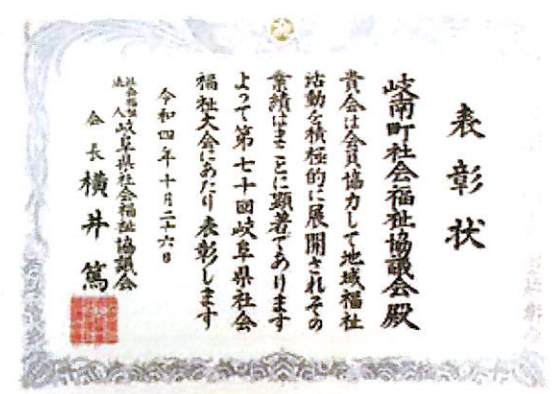 表彰状
岐南町社会福祉協議会殿
貴会は会員協力して地域福祉
活動を積極的に展開されその
業績はまことに顕著であります
よって第七十回岐阜県社会
福祉大会にあたり表彰します
令和四年十月二十六日
社会福祉法人岐阜県社会福祉協議会
会長横井篤